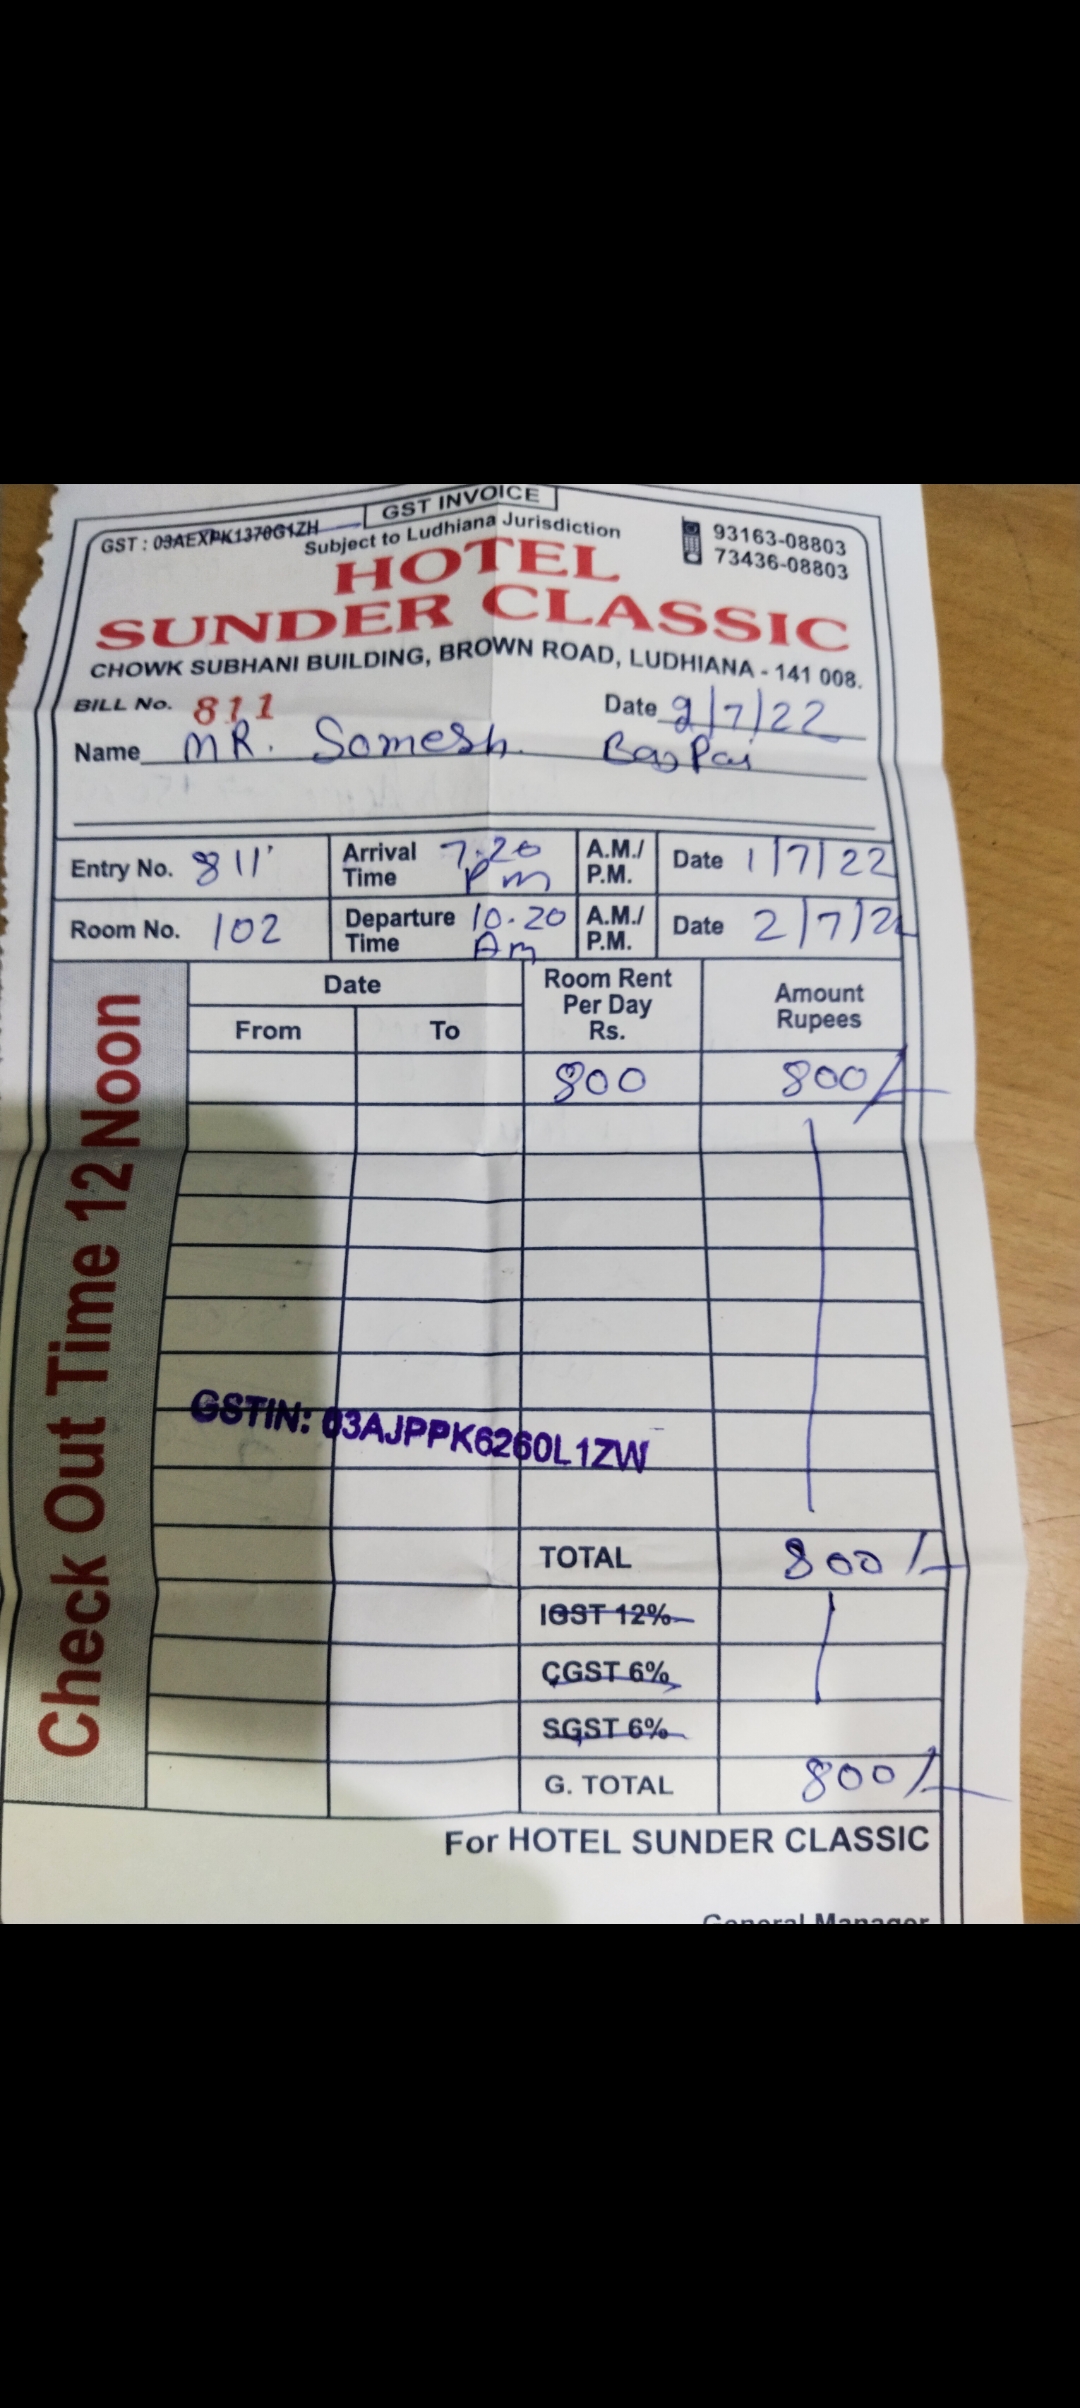 GST INVOICE
GST : 03AEXPK1370G1ZH
Subject to Ludhiana Jurisdiction
93163-08803
73436-08803
HOTEL
SUNDER CLASSIC
CHOWK SUBHANI BUILDING, BROWN ROAD, LUDHIANA - 141 008.
BILL No. 811 Date 2/7/22
Name MR. Somesh
Entry No. 811 Arrival Time 7.20 Pm A.M./ P.M. Date 1/7/22
Room No. 102 Departure Time 10.20 Am A.M./ P.M. Date 2/7/22
Check Out Time 12 Noon
Date Room Rent Per Day Rs. Amount Rupees
From To
800 800/-
GSTIN: 03AJPPK6260L1ZW
TOTAL 800/-
IGST 12%
CGST 6%
SGST 6%
G. TOTAL 800/-
For HOTEL SUNDER CLASSIC
General Manager